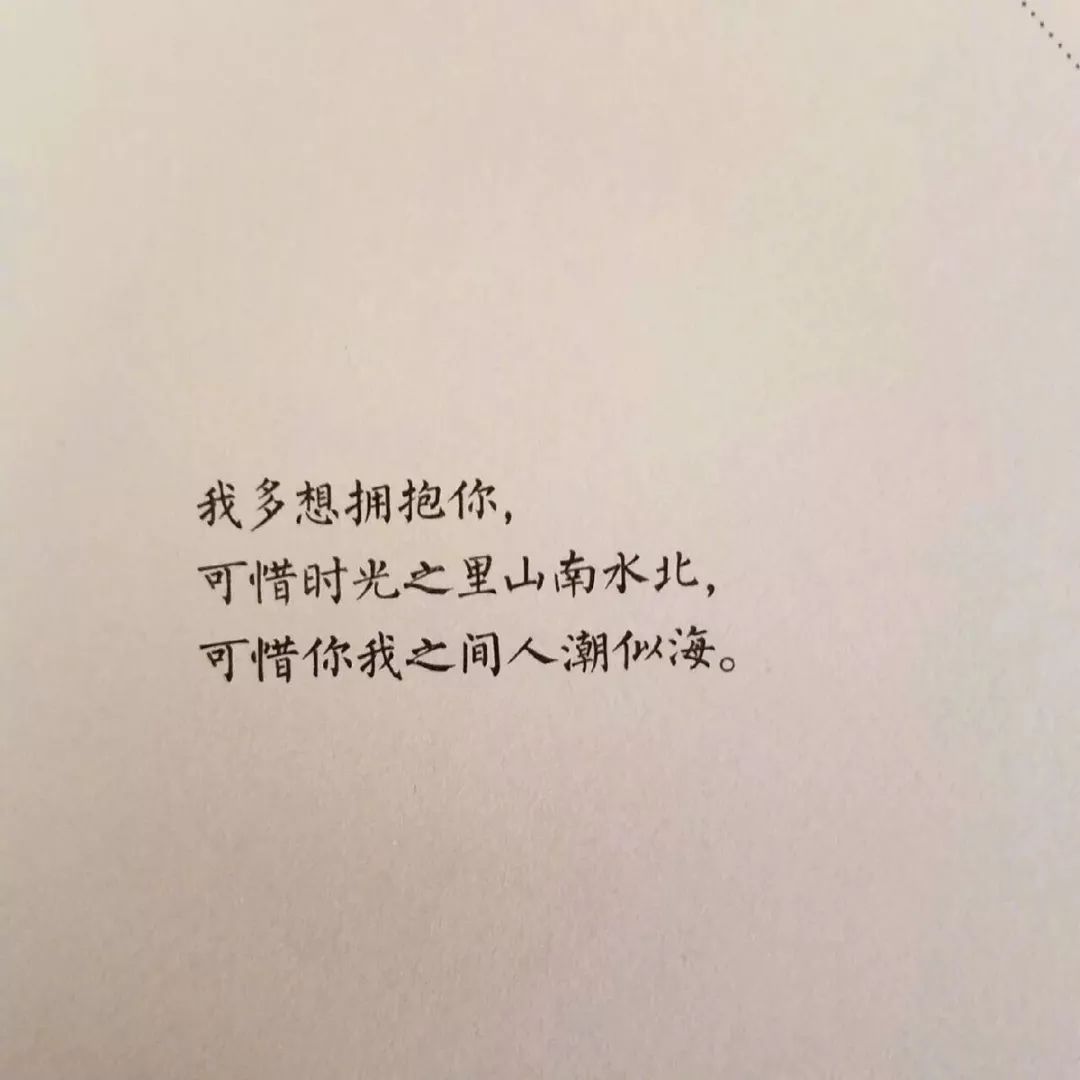 我多想拥抱你,
可惜时光之里山南水北,
可惜你我之间人潮似海。